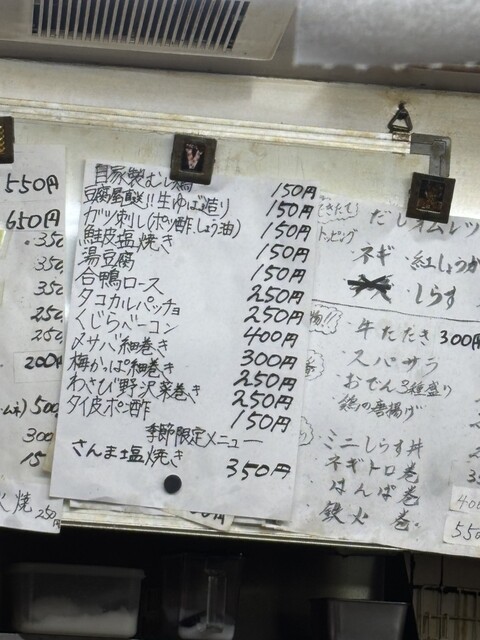 550円
650円
350
350
350
250
250
200円
500
300
15
火焼 250円
自家製むし鶏 150円
豆腐屋直送!!生ゆば造り 150円
ガツ刺し(ポン酢.しょう油) 150円
鮭皮塩焼き 150円
湯豆腐 150円
合鴨ロース 250円
タコカルパッチョ 250円
くじらベーコン 400円
〆サバ細巻き 300円
梅かっぱ細巻き 250円
わさび野沢菜巻き 250円
タイ皮ポン酢 150円
季節限定メニュー
さんま塩焼き 350円
だしオムレツ
トッピング
ネギ ・紅しょうが
・しらす
・牛たたき 300円
・スパサラ
・おでん3種盛り
・鶏の唐揚げ
・ミニしらす丼
・ネギトロ巻
・はんぱ巻
・鉄火巻
400
550